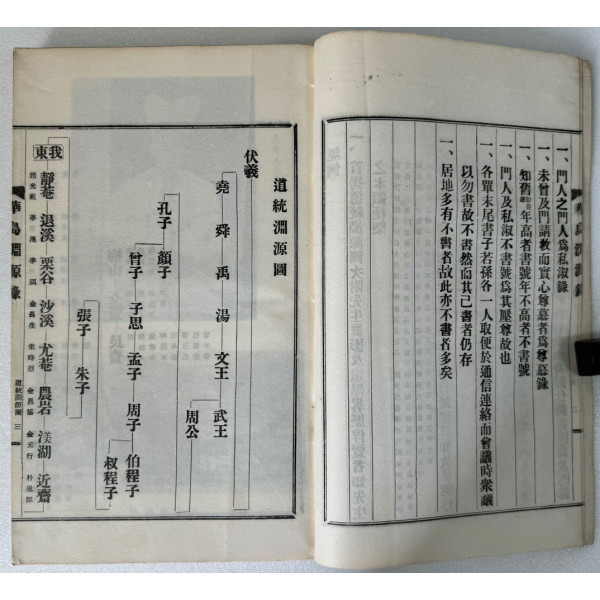 一、門人之門人爲私淑錄
一、未曾及門請敎而實心尊慕者爲尊慕錄
一、知舊年高者書號年不高者不書號
一、門人及私淑不書號爲其壓尊故也
一、各單末尾書子若孫各一人取便於通信連絡而會議時衆議
以勿書故不書然而其已書者仍存
一、居地多有不書者故此亦不書者多矣
道統淵源圖
伏羲
堯 舜 禹 湯 文王 武王
周公
孔子 顔子
曾子 子思 孟子 周子 伯程子
叔程子
張子 朱子
我東
靜菴 退溪 栗谷 沙溪 尤菴 農岩 渼湖 近齋
趙光祖 李滉 李珥 金長生 宋時烈 金昌協 金元行 朴胤源
華島淵源錄
道統淵源圖 三